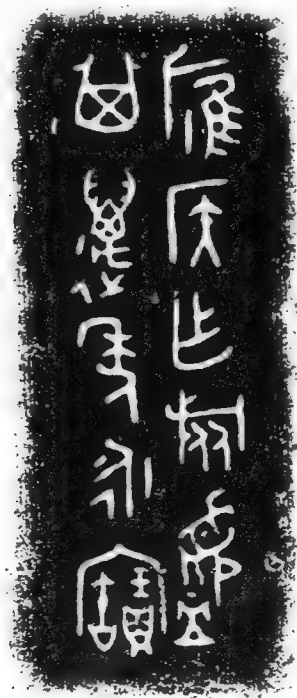 雁侯乍旅盨
其萬年永寶